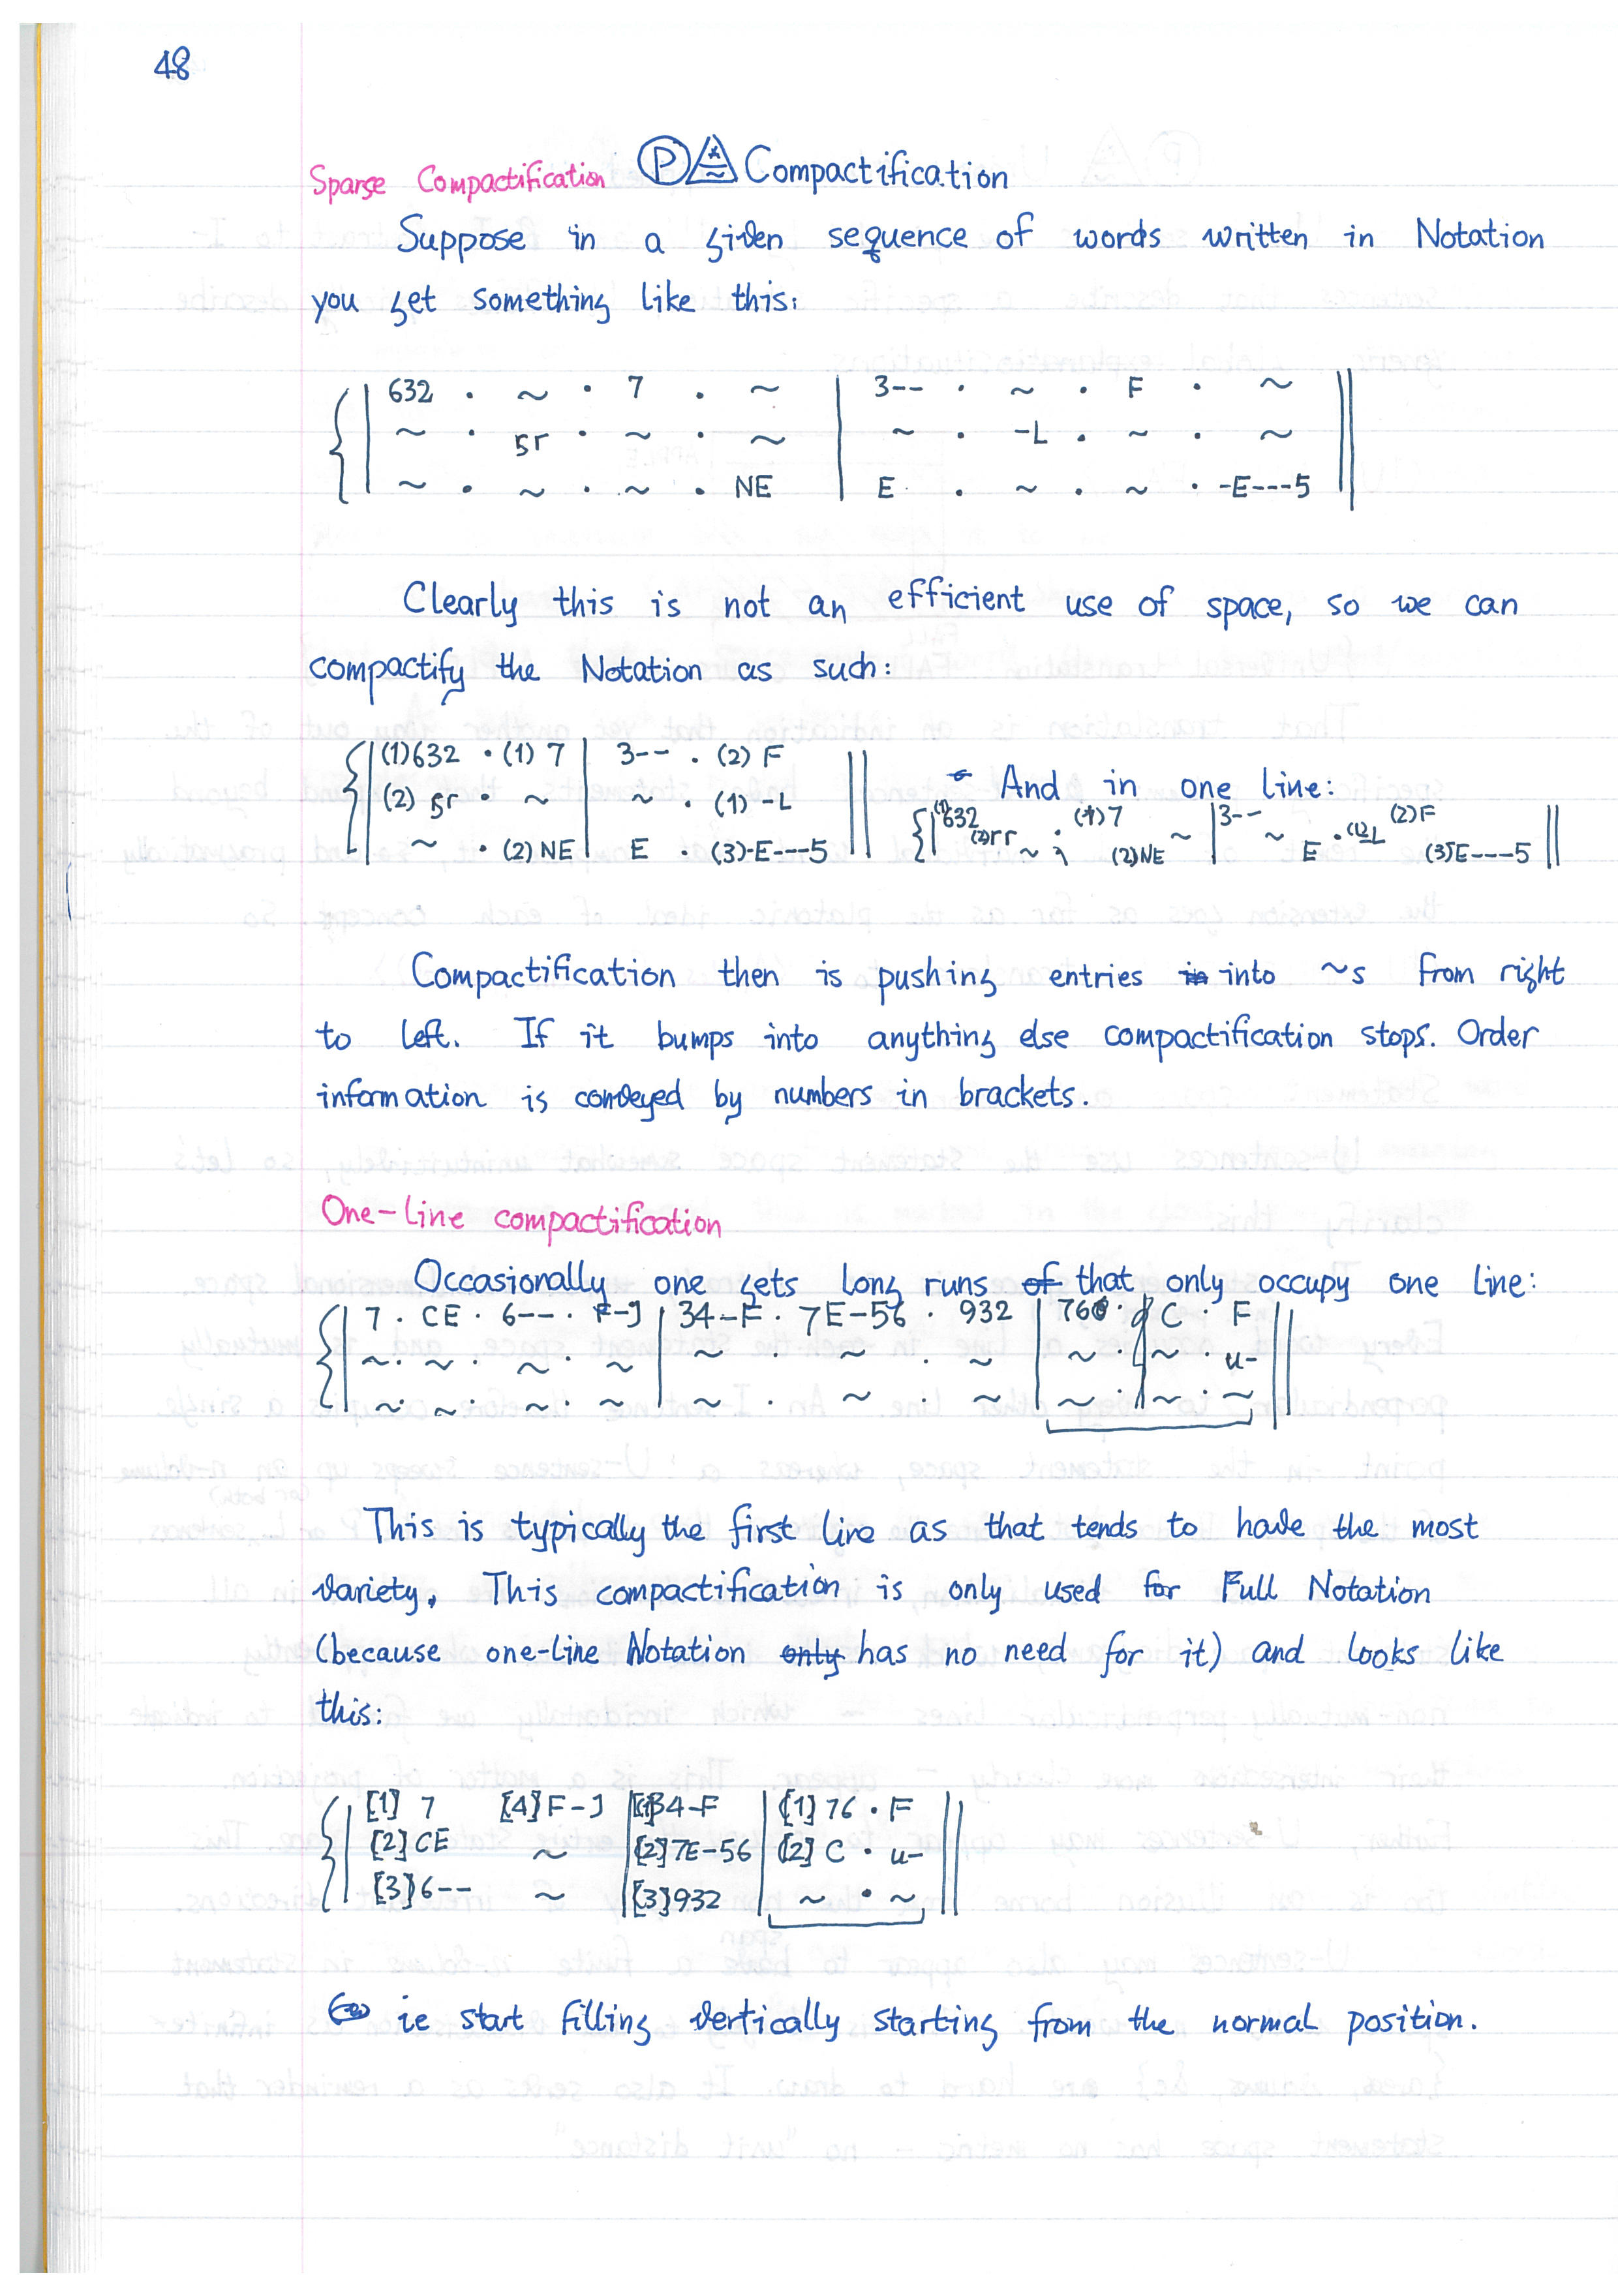 48
Sparse Compactification Ⓟ Compactification
Suppose in a given sequence of words written in Notation
you get something like this:
632 · ~ · 7 · ~ | 3-- · ~ · F · ~
~ · 5r · ~ · ~ | ~ · -L · ~ · ~
~ · ~ · ~ · NE | E · ~ · ~ · -E---5
Clearly this is not an efficient use of space, so we can
compactify the Notation as such:
(1)632 · (1) 7 | 3-- · (2) F
(2) 5r · ~ | ~ · (1) -L
~ · (2) NE | E · (3)-E---5
And in one line:
(1)632 (2)rr ~ · (1)7 (2)NE ~ | 3-- ~ E · (1)L (2)F (3)E---5
Compactification then is pushing entries into ~s from right
to left. If it bumps into anything else compactification stops. Order
information is conveyed by numbers in brackets.
One-line compactification
Occasionally one gets long runs of that only occupy one line:
7 · CE · 6-- · F-J | 34-F · 7E-56 · 932 | 76 · C · F
~ · ~ · ~ · ~ | ~ · ~ · ~ | ~ · ~ · u-
~ · ~ · ~ · ~ | ~ · ~ · ~ | ~ · ~ · ~
This is typically the first line as that tends to have the most
variety. This compactification is only used for Full Notation
(because one-line Notation only has no need for it) and looks like
this:
[1] 7 [4] F-J | [1]34-F | [1] 76 · F
[2] CE ~ | [2] 7E-56 | [2] C · u-
[3] 6-- ~ | [3] 932 | ~ · ~
ie start filling vertically starting from the normal position.